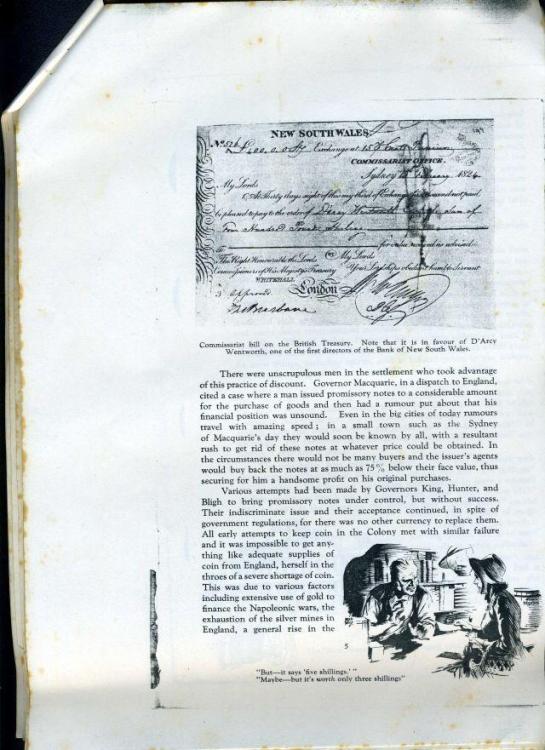 NEW SOUTH WALES
Exchange at
COMMISSARIAT OFFICE.
Sydney 1824
My Lords
At Thirty days sight of this my third of Exchange
be pleased to pay to the order of D'Arcy Wentworth sum of
for value received as advised
The Right Honourable the Lords My Lords
Commissioners of His Majesty's Treasury Your Lordships obedient humble Servant
WHITEHALL
London
Approved
Commissariat bill on the British Treasury. Note that it is in favour of D'Arcy
Wentworth, one of the first directors of the Bank of New South Wales.
There were unscrupulous men in the settlement who took advantage
of this practice of discount. Governor Macquarie, in a dispatch to England,
cited a case where a man issued promissory notes to a considerable amount
for the purchase of goods and then had a rumour put about that his
financial position was unsound. Even in the big cities of today rumours
travel with amazing speed; in a small town such as the Sydney
of Macquarie's day they would soon be known by all, with a resultant
rush to get rid of these notes at whatever price could be obtained. In
the circumstances there would not be many buyers and the issuer's agents
would buy back the notes at as much as 75% below their face value, thus
securing for him a handsome profit on his original purchases.
Various attempts had been made by Governors King, Hunter, and
Bligh to bring promissory notes under control, but without success.
Their indiscriminate issue and their acceptance continued, in spite of
government regulations, for there was no other currency to replace them.
All early attempts to keep coin in the Colony met with similar failure
and it was impossible to get any-
thing like adequate supplies of
coin from England, herself in the
throes of a severe shortage of coin.
This was due to various factors
including extensive use of gold to
finance the Napoleonic wars, the
exhaustion of the silver mines in
England, a general rise in the
5
"But—it says 'five shillings.' "
"Maybe—but it's worth only three shillings"